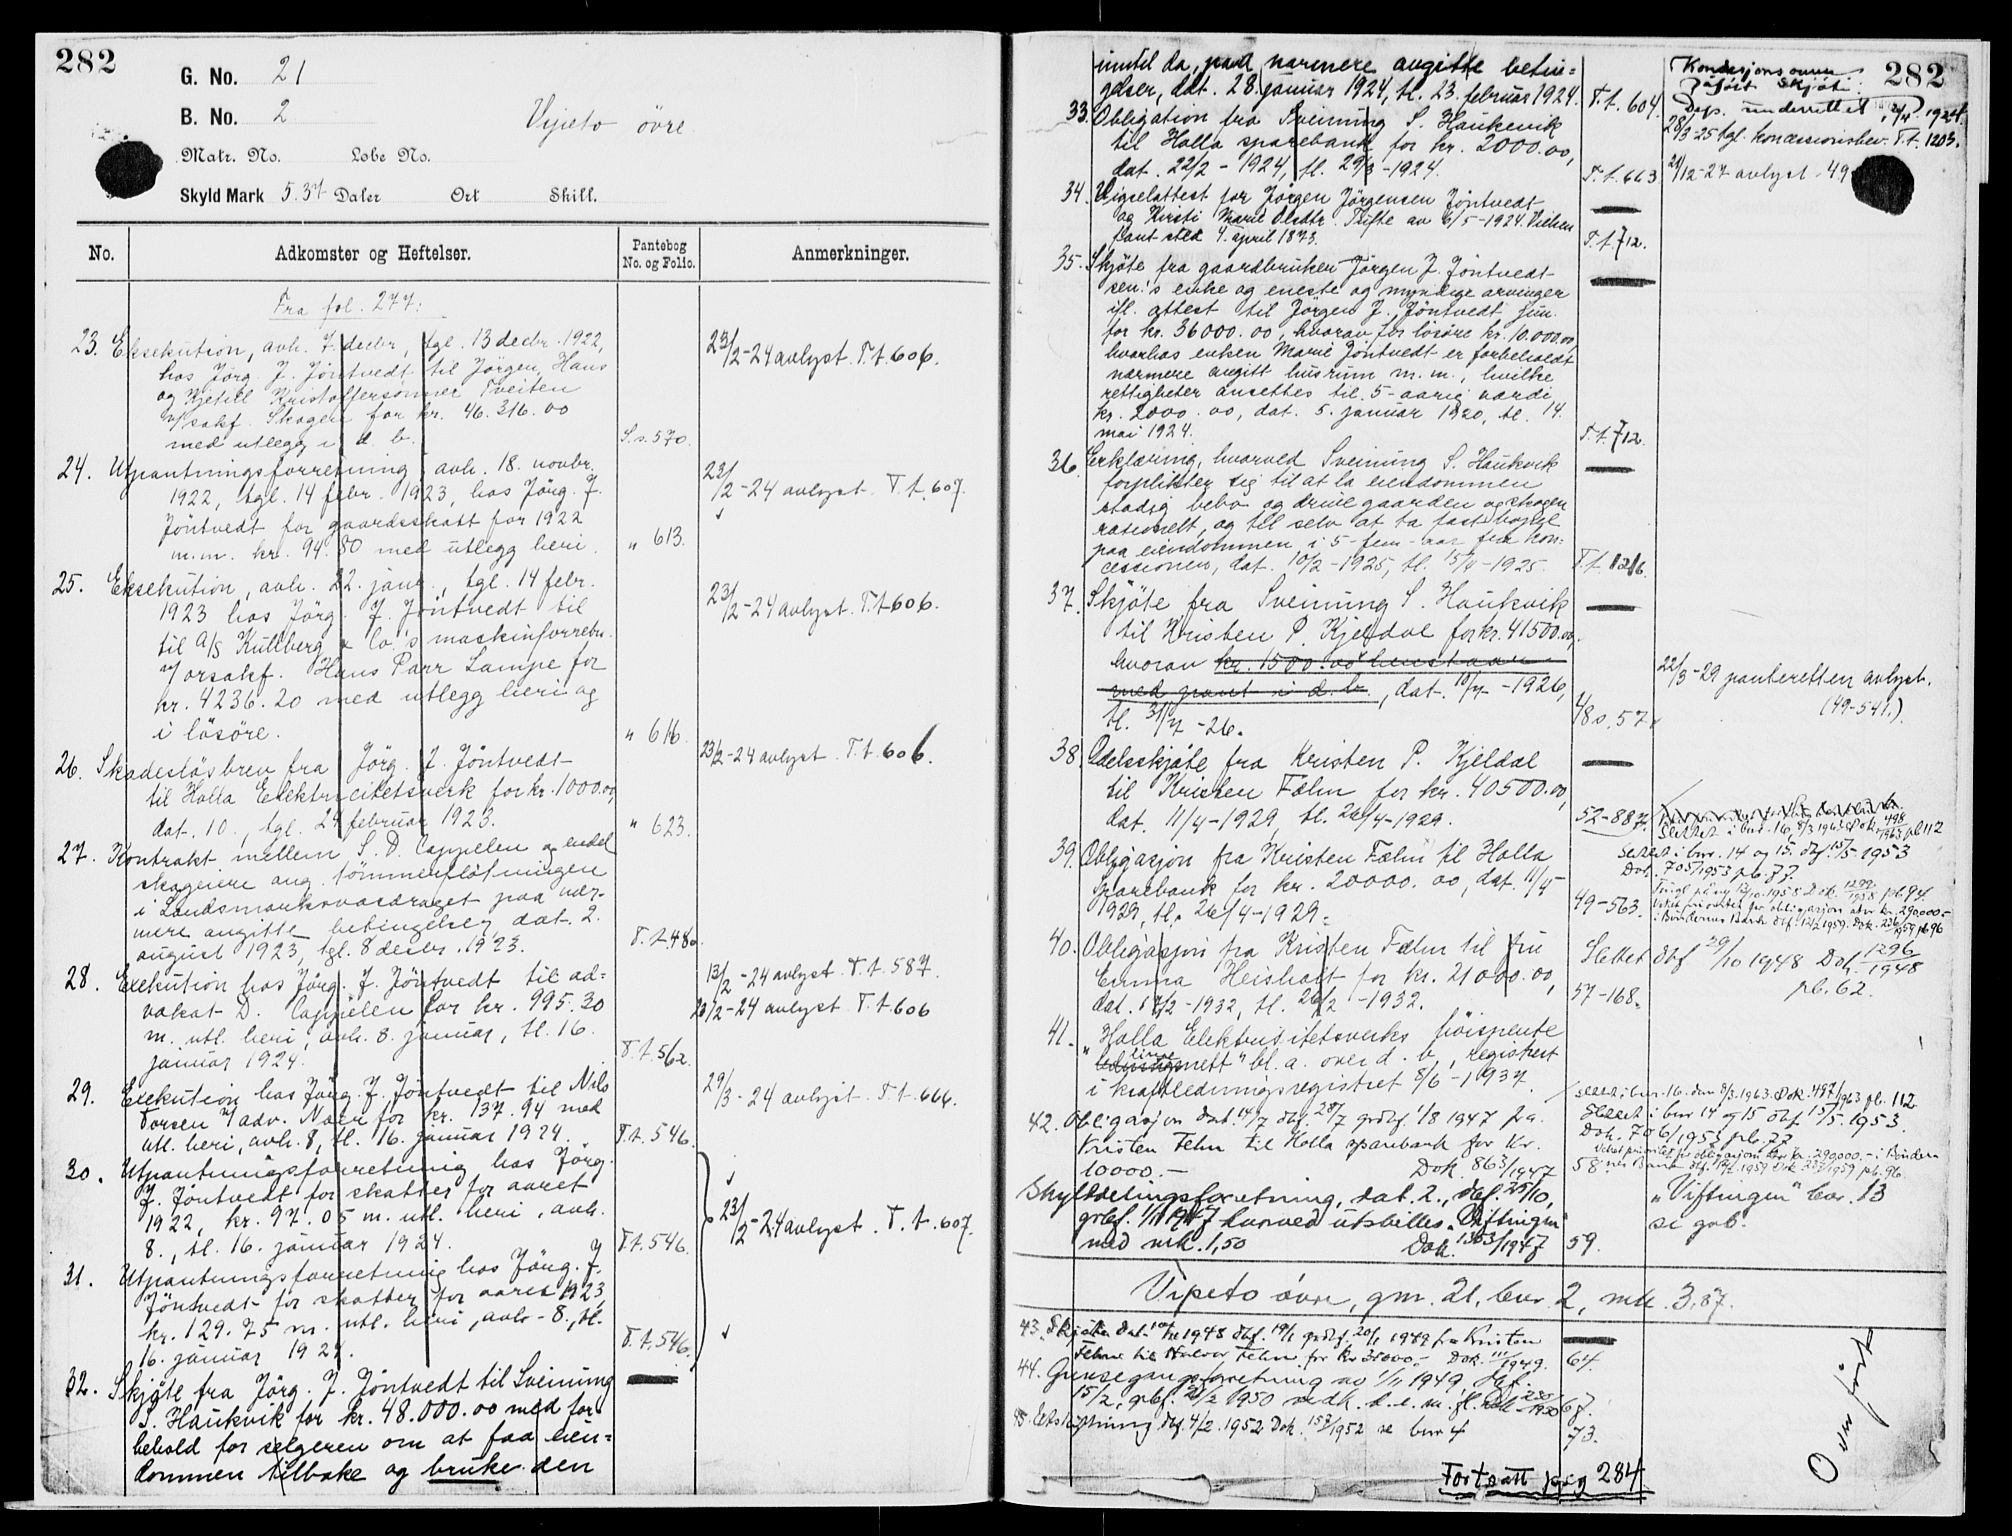 282
G. No. 21
B. No. 2
Vipeto övre
Matr. No. Lobe No.
Skyld Mark 5.37 Daler Ort Skill.
No. Adkomster og Heftelser. Pantebog No. og Folio. Anmerkninger.
Fra fol. 277.
23. Eksekution, avh. 7. decbr, tgl. 13 decbr. 1922,
hos Jörg. J. Jöntvedt til Jörgen, Hans
og Kjetill Kristoffersönner Tveiten
v/ sakf. Skogen for kr. 46.316.00
med utlegg i d. b. S.s. 570.
23/2-24 avlyst. T.t. 606.
24. Utpantningsforretning, avh. 18. novbr.
1922, tgl. 14 febr. 1923, hos Jörg. J.
Jöntvedt for gaardsskatt for 1922
m.m. kr. 94.80 med utlegg heri. " 613.
23/2-24 avlyst. T.t. 607.
25. Eksekution, avh. 22. janr., tgl. 14 febr.
1923 hos Jörg. J. Jöntvedt til
til A/S Kullberg & Co.'s maskinforretn.
v/ orsakf. Hans Parr Lampe for
kr. 4236.20 med utlegg heri og
i lösöre. " 616.
23/2-24 avlyst. T.t. 606.
26. Skadeslösbrev fra Jörg. J. Jöntvedt
til Holla Elektricitetsverk for kr. 1000.00,
dat. 10., tgl. 24 februar 1923. " 623.
23/2-24 avlyst. T.t. 606.
27. Kontrakt mellem S. D. Cappelen og endel
skogeiere ang. tömmerflötningen
i Landsmarksvasdraget paa nær-
mere angitte betingelser, dat. 2.
august 1923, tgl. 8 decbr. 1923. T.t. 480.
28. Exekution hos Jörg. J. Jöntvedt til ad-
vokat D. Cappelen for kr. 995.30
m. utl. heri, avh. 8. januar, tl. 16.
januar 1924. T.t. 562.
13/2-24 avlyst. T.t. 587.
23/2-24 avlyst. T.t. 606
29. Exekution hos Jörg. J. Jöntvedt til Nils
Torsen v/ adv. Næss for kr. 137.94 med
utl. heri, avh. 8, tl. 16. januar 1924. T.t. 546.
29/3-24 avlyst. T.t. 666.
30. Utpantningsforretning hos Jörg.
J. Jöntvedt for skatter for aaret
1922, kr. 97.05 m. utl. heri, avh.
8., tl. 16. januar 1924. T.t. 546.
23/2-24 avlyst. T.t. 607.
31. Utpantningsforretning hos Jörg. J.
Jöntvedt for skatter for aaret 1923
kr. 129.75 m. utl. heri, avh. 8., tl.
16. januar 1924. T.t. 546.
32. Skjöte fra Jörg. J. Jöntvedt til Sveinung
S. Haukvik for kr. 48.000.00 med for-
behold for selgeren om at faa eien-
dommen tilbake og bruke den
282
inntil da, paa nærmere angitte betin-
gelser, dat. 28. januar 1924, tl. 23. februar 1924. T.t. 604.
Deps. underrettet 1924.
28/3-25 tgl. koncessionsbev. T.t. 1203.
33. Obligation fra Sveinung S. Haukevik
til Holla sparebank for kr. 2000.00,
dat. 22/2-1924, tl. 29/3-1924. T.t. 663
21/12-27 avlyst. 49
34. Vigselattest for Jörgen Jörgensen Jöntvedt
og Kirsti Marie Olsdtr. Tufte av 6/5-1924. Vielsen
fant sted 4. april 1873. T.t. 712.
35. Skjöte fra gaardbruker Jörgen J. Jöntvedt
sen.'s enke og eneste og myndige arvinger
ifl. attest til Jörgen J. Jöntvedt jun.
for kr. 36000.00, hvorav for lösöre kr. 10.000.00,
hvorhos enken Marie Jöntvedt er forbeholdt
nærmere angitt husrum m.m., hvilke
rettigheter ansettes til 5-aarig værdi
kr. 2000.00, dat. 5. januar 1920, tl. 14.
mai 1924. T.t. 712.
36. Erklæring, hvorved Sveinung S. Haukvik
forplikter sig til at la eiendommen
stadig bebo og drive gaarden og skogen
rationelt, og til selv at ta fast bopæl
paa eiendommen i 5-fem-aar fra kon-
cessionen, dat. 10/2-1925, tl. 15/4-1925. T.t. 1216.
37. Skjöte fra Sveinung S. Haukvik
til Kristen P. Kjeldal for kr. 41500.00,
hvorav kr. 1500.00 henstaar
med pant i d. b., dat. 10/7-1926,
tl. 31/7-26.
22/3-29 panteretten avlyst.
(49-541.)
38. Odelsskjöte fra Kristen P. Kjeldal
til Kristen Fælm for kr. 40500.00,
dat. 11/4-1929, tl. 26/4-1929. 52-887.
Slettet i bnr. 16, 8/3 1963 Dok. 498/1963 pb 112
39. Obligasjon fra Kristen Fælm til Holla
Sparebank for kr. 20000.00, dat. 11/4
1929, tl. 26/4-1929. 49-563.
Slettet i bnr. 14 og 15. dbf 15/5. 1953
Dok. 705/1953 pb. 77.
40. Obligasjon fra Kristen Fælm til fru
Emma Heisholt for kr. 21000.00,
dat. 17/2-1932, tl. 26/2-1932. 57-168.
Slettet dbf 29/10 1948 Dok. 1296/1948
pb. 62.
41. Holla Elektrisitetsverks höispente
"ledningsnett" bl. a. over d. b., registrert
linje
i kraftledningsregistret 8/6-1937.
42. Obligasjon dat. 14/7 dbf. 28/7 grbf. 1/8 1947 fra
Kristen Felm til Holla sparebank for kr.
10000.- Dok. 863/1947 58
Slettet i bnr. 16. den 8/3.1963. Dok. 497/1963 pb. 112
Slettet i bnr 14 og 15 dbf 15/5. 1953.
Dok. 706/1953 pb. 77
Skylddelingsforretning, dat. 2., dbf. 25/10,
grbf. 1/11 1947 hvorved utskilles "Viftingen"
med mk. 1,50 Dok. 1363/1947 59.
"Viftingen" bnr. 13
se gnb.
Vipeto övre, gnr. 21, bnr. 2, mk. 3,87.
43. Skjöte dbf. 19/1 grbf. 20/1 1949 fra Kristen
Felm til Halvor Felm for kr 35000.- Dok. 111/1949. 64.
44. Grensegangsforretning av 1/11 1949, dbf.
15/2, grbf. 1950 67.
45. Utskiftning dbf. 4/2. 1952 Dok. 157/1952 se bnr 4 73.
Fortsatt pag 284
Overfört